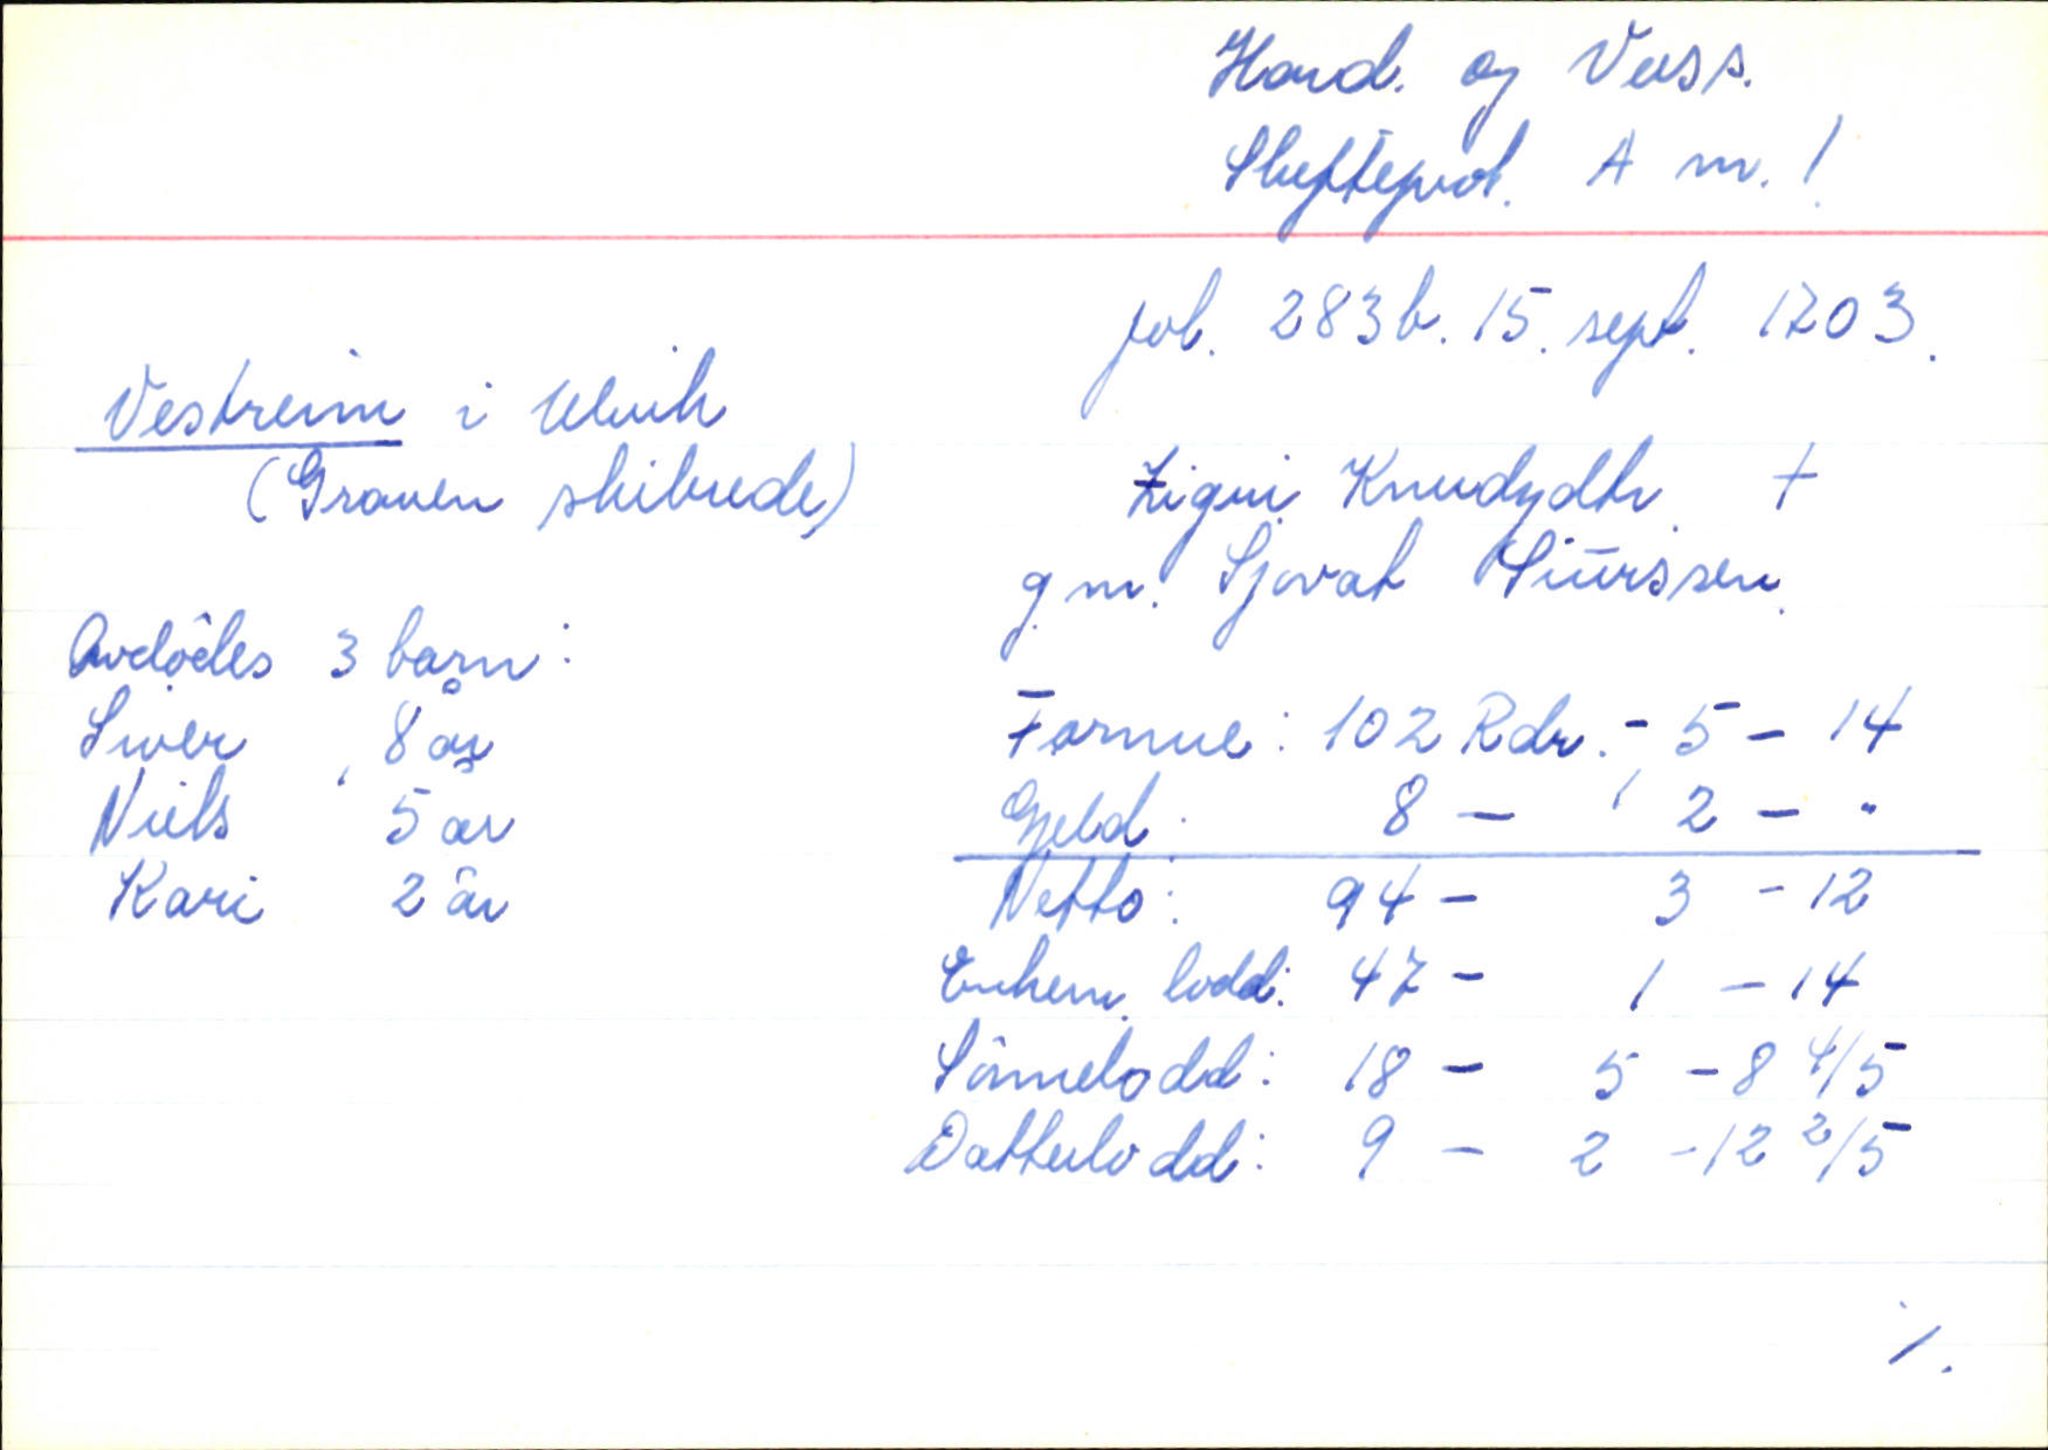 Hard. og Voss.
Skifteprot. A nr. 1
fol. 283b. 15. sept. 1703.
Vestreim i Ulvik
(Graven skibrede)
Knudsdtr. +
g.m. Sjovat Siurssen.
Avdödes 3 barn:
Siver 8 år
Niels 5 år
Kari 2 år
Formue: 102 Rdr. - 5 - 14
Gjeld: 8 - 2 - "
Netto: 94 - 3 - 12
Enkem. lodd: 47 - 1 - 14
Sönnelodd: 18 - 5 - 8 4/5
Datterlodd: 9 - 2 - 12 2/5
/.